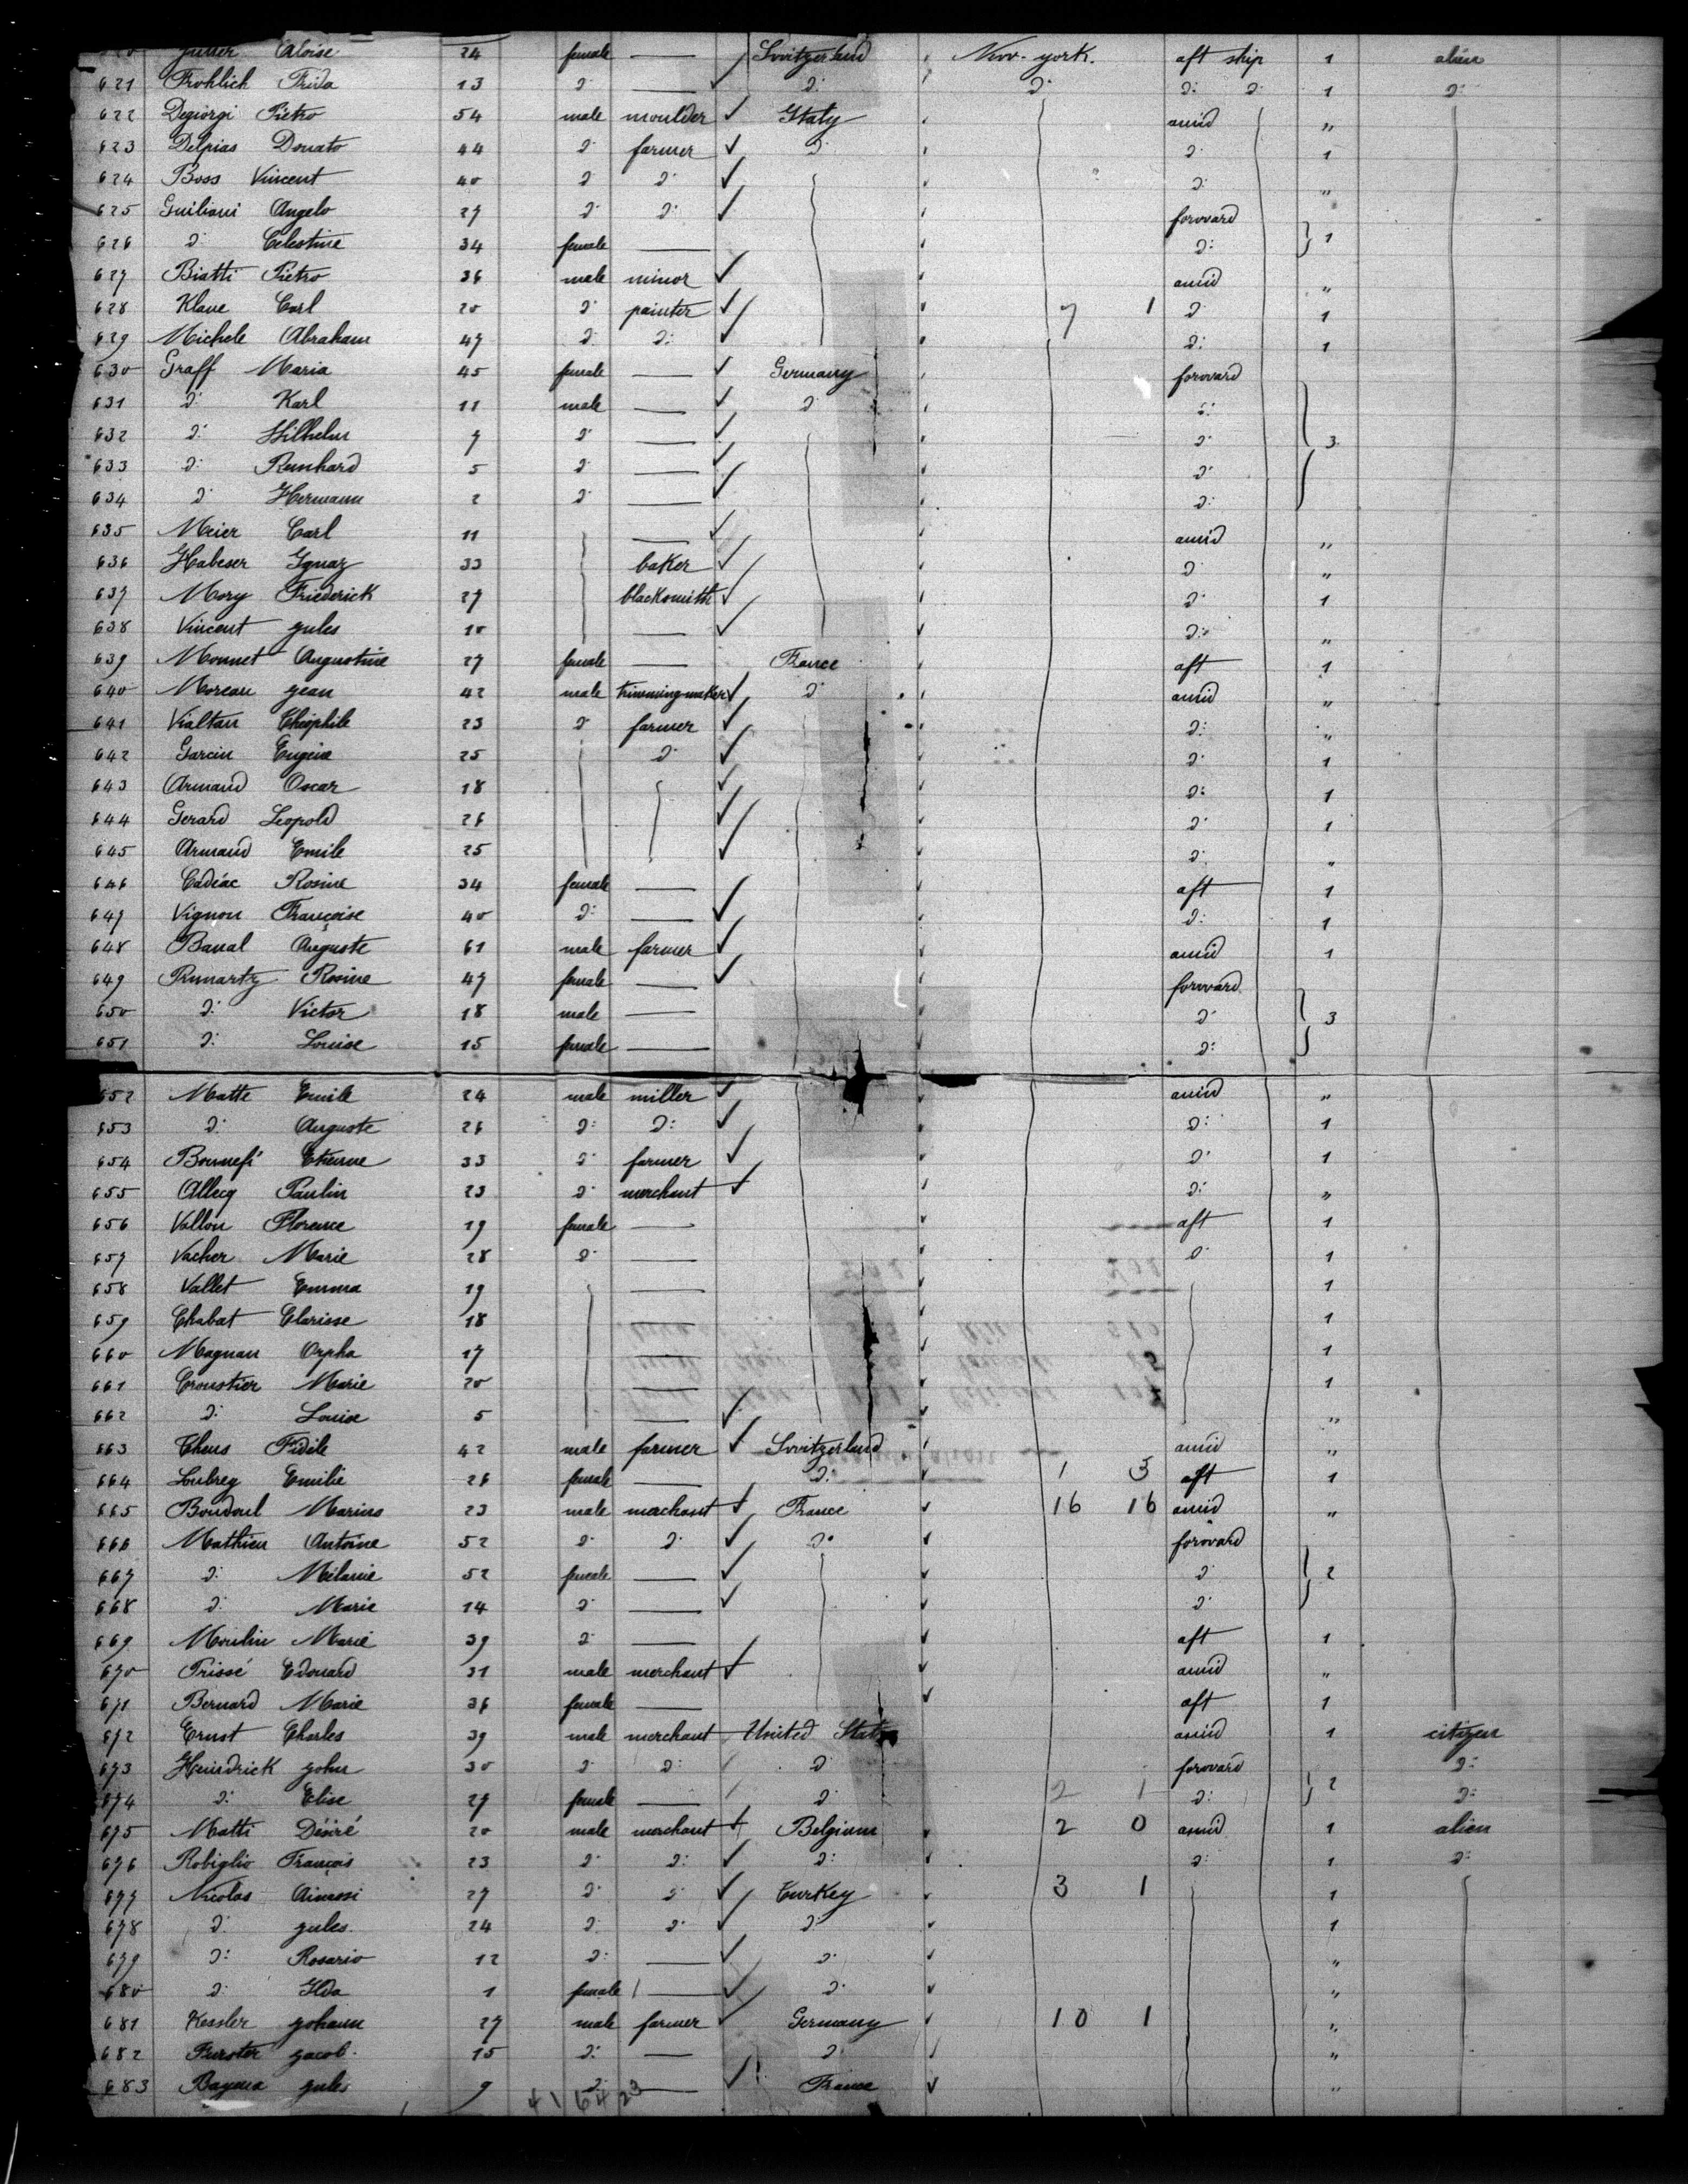 Aloise 24 female — Switzerland New-york. aft ship 1 alien
621 Frohlich Frida 13 d: — d: d: d: d: 1 d:
622 Degiorgi Pietro 54 male moulder Italy amid "
623 Delpias Donato 44 d: farmer d: d: 1
624 Boss Vincent 40 d: d: d: "
625 Guiliani Angelo 27 d: d: forward
626 d: Celestine 34 female — d: 1
627 Biatti Pietro 36 male minor amid "
628 Klaue Carl 20 d: painter 7 1 d: 1
629 Michele Abraham 47 d: d: d: 1
630 Graff Maria 45 female — Germany forward
631 d: Karl 11 male — d: d:
632 d: Wilhelm 7 d: — d: 3
633 d: Reinhard 5 d: — d:
634 d: Hermann 2 d: — d:
635 Meier Carl 11 — amid "
636 Habeser Ignaz 33 baker d: "
637 Mory Friederick 27 blacksmith d: 1
638 Vincent jules 10 — d: "
639 Monnet Augustine 27 female — France aft 1
640 Moreau jean 42 male trimming-maker d: amid "
641 Vialtan Théophile 23 d: farmer d: "
642 Garcin Eugène 25 d: d: 1
643 Armand Oscar 18 d: 1
644 Gerard Leopold 26 d: 1
645 Armand Emile 25 d: "
646 Cadéac Rosine 34 female — aft 1
647 Vignon Françoise 40 d: — d: 1
648 Banal Auguste 61 male farmer amid 1
649 Rosine 47 female — forward
650 d: Victor 18 male — d: 3
651 d: Louise 15 female — d:
652 Matte Emile 24 male miller amid "
653 d: Auguste 26 d: d: d: 1
654 Etienne 33 d: farmer d: 1
655 Allecq Paulin 23 d: merchant d: "
656 Vallon Florence 19 female — aft 1
657 Vacher Marie 28 d: — d: 1
658 Vallet Emma 19 — 1
659 Chabat Clarisse 18 — 1
660 Magnan Orpha 17 — 1
661 Croustier Marie 20 — 1
662 d: Louise 5 — "
663 Theus Fidèle 42 male farmer Switzerland amid "
664 Loubrey Emilie 26 female — d: 1 3 aft 1
665 Boudoul Marius 23 male merchant France 16 16 amid "
666 Mathieu Antoine 52 d: d: d: forward
667 d: Mélanie 52 female — d: 2
668 d: Marie 14 d: — d:
669 Moulin Marie 39 d: — aft 1
670 Trissé Edouard 31 male merchant amid "
671 Bernard Marie 36 female — aft 1
672 Ernst Charles 39 male merchant United States amid 1 citizen
673 Heindrick john 30 d: d: d: forward d:
674 d: Elise 27 female — d: 2 1 d: 2 d:
675 Matti Désiré 20 male merchant Belgium 2 0 amid 1 alien
676 Robiglio François 23 d: d: d: d: 1 d:
677 Nicolas 27 d: d: Turkey 3 1 1
678 d: jules. 24 d: d: d: 1
679 d: Rosario 12 d: — d: "
680 d: Ilda 1 female — d: "
681 Kessler johann 27 male farmer Germany 10 1 "
682 Furster jacob. 15 d: — d: "
683 jules 9 d: — France "